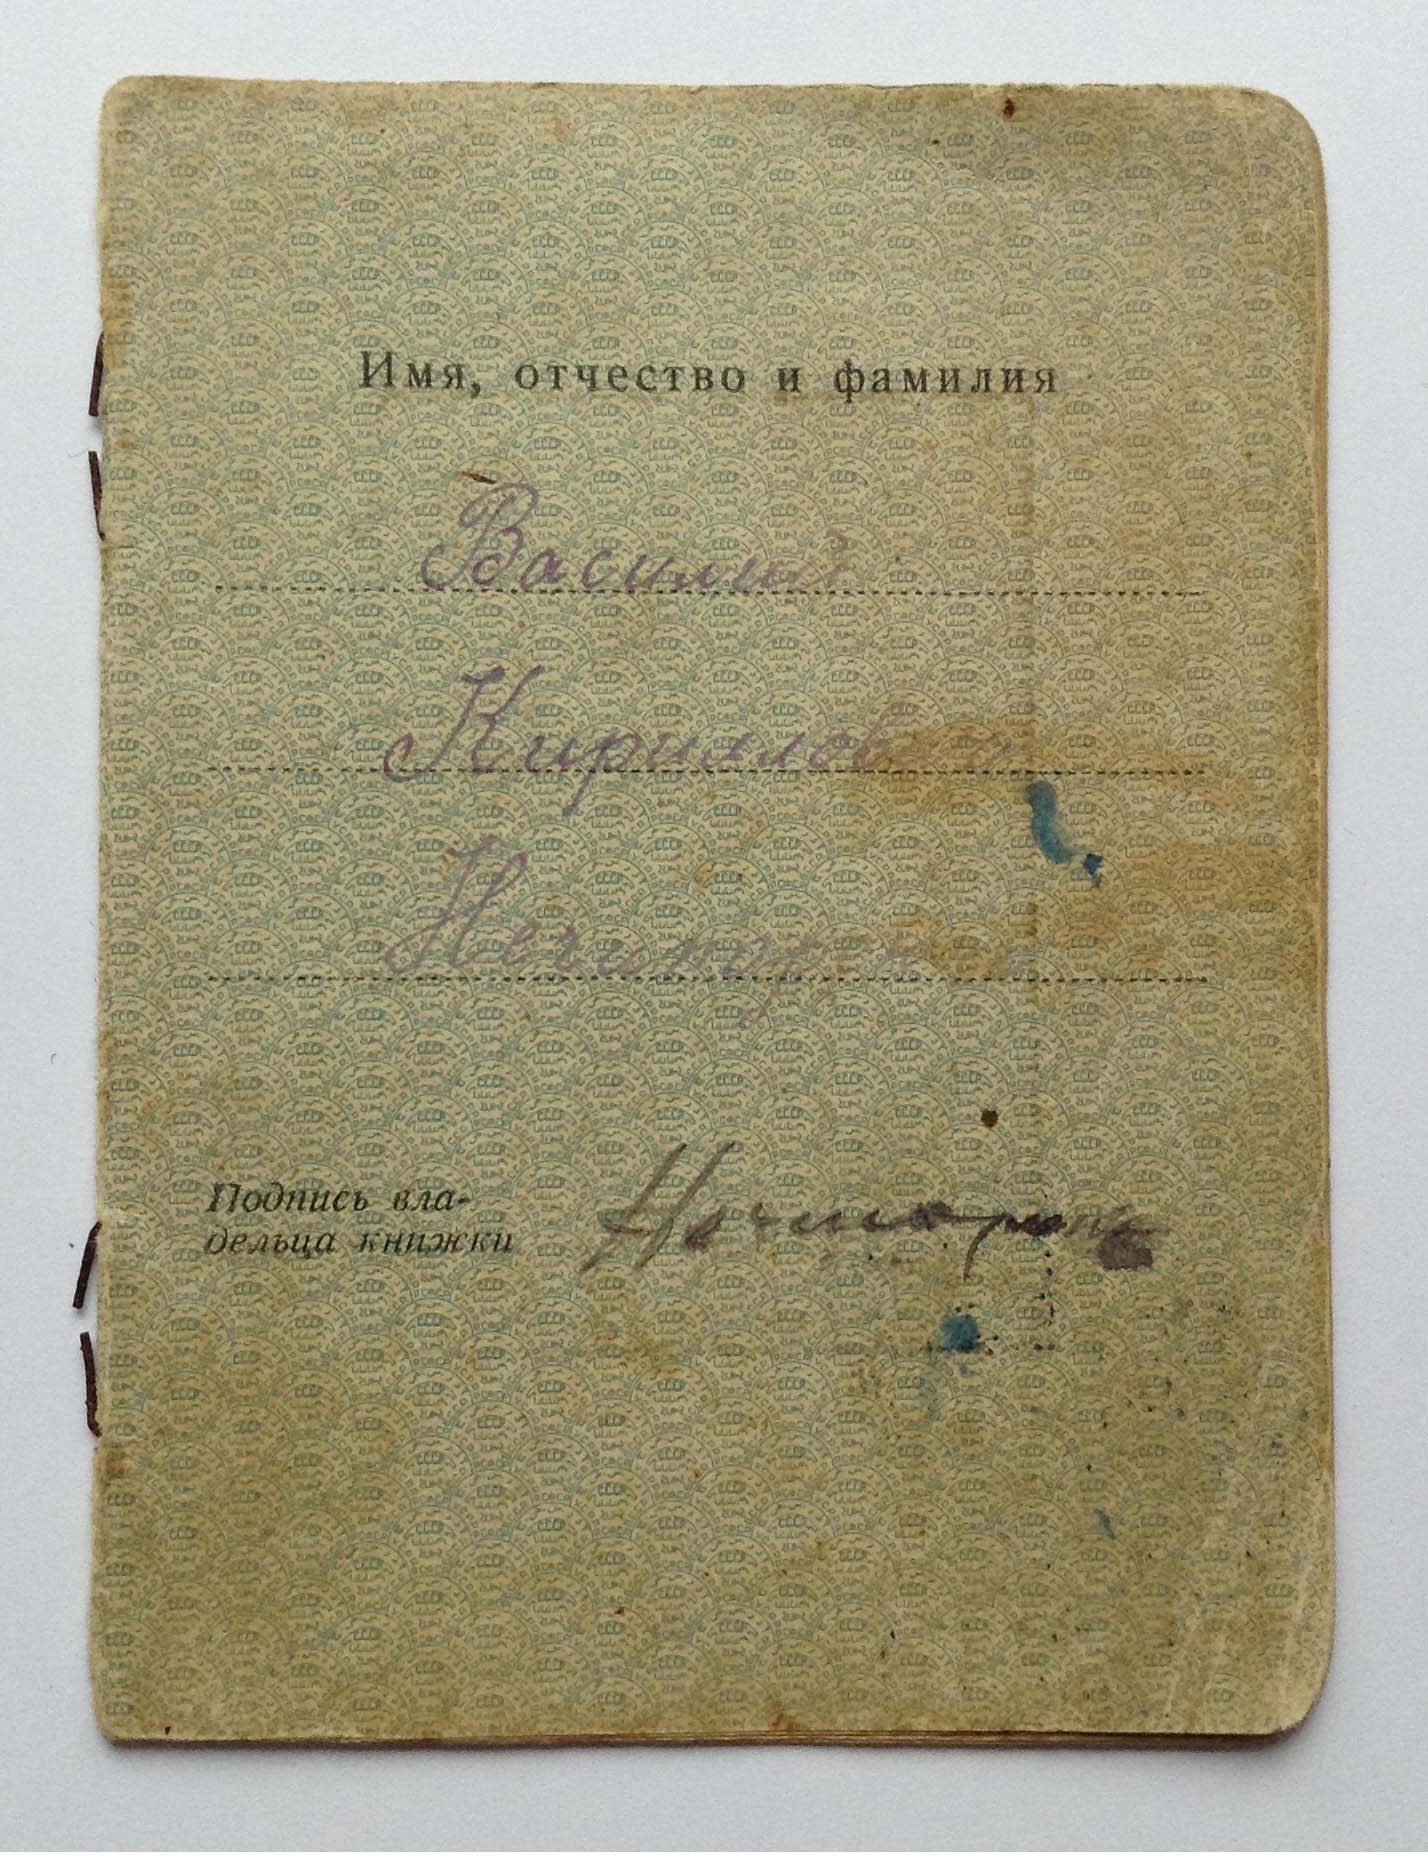 Имя, отчество и фамилия
Василий
Кириллович
Подпись вла-
дельца книжки